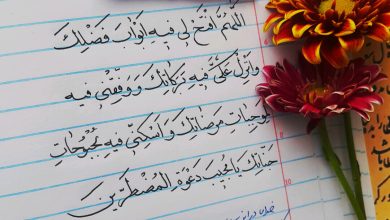 اللّهُمَّ افْتَحْ لي فيهِ اَبْوابَ فَضْلِكَ
وَاَنْزِلْ عَلَيَّ فيهِ بَرَكاتِكَ وَوَفِّقْني فيهِ
لِمُوجِباتِ مَرْضاتِكَ وَاَسْكِنّي فيهِ بُحْبُوحاتِ
جَنّاتِكَ يا مُجيبَ دَعْوَةِ الْمُضْطَرّينَ